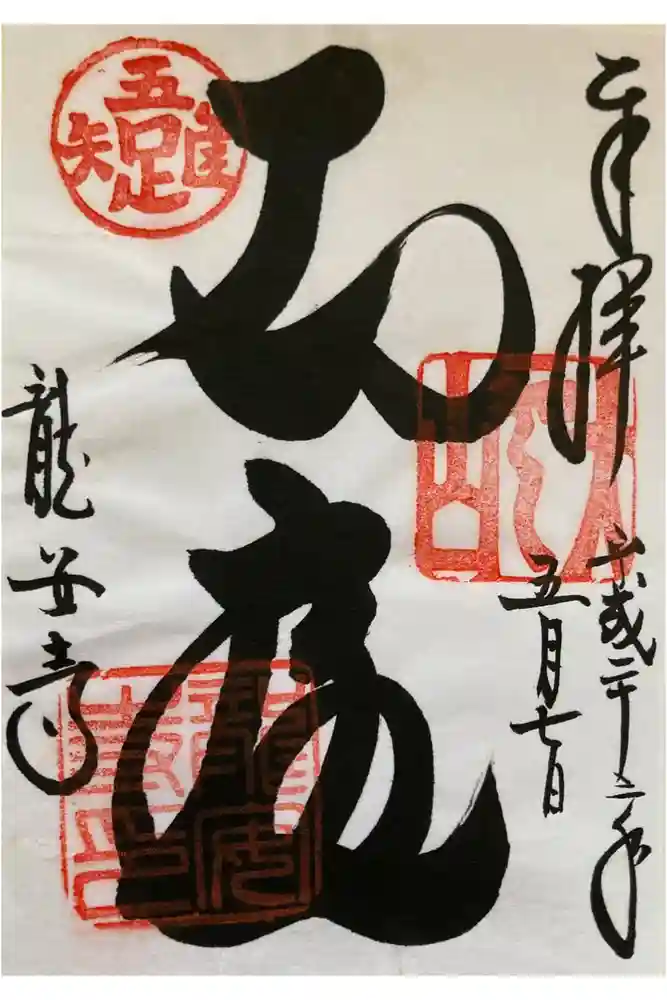 奉拝
平成二十三年
五月七日
石庭
龍安寺
吾唯足知
大雲山
龍安寺印